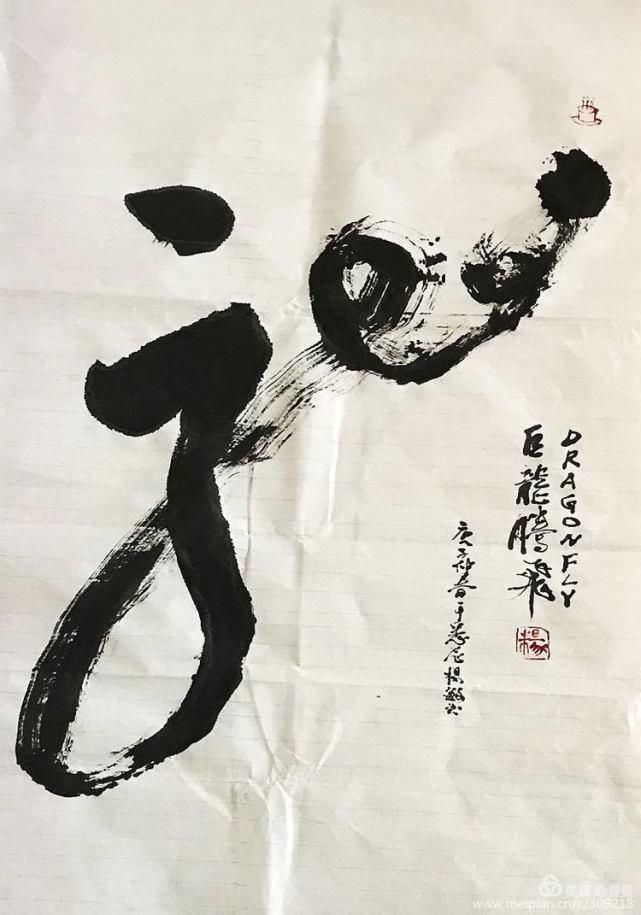 DRAGONFLY
巨龍騰飛
庚子仲春于悉尼楊敏
楊
美篇
www.meipian.cn/c/309218